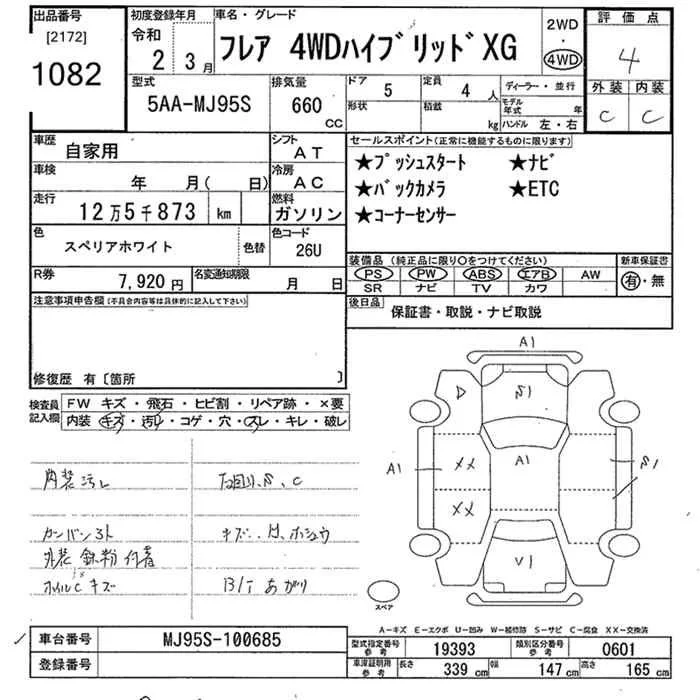 出品番号
[2172]
1082
初度登録年月
令和
2 3月
車名・グレード
フレア 4WDハイブリッドXG
2WD
・
4WD
評価点
4
外装 内装
C C
型式
5AA-MJ95S
排気量
660
CC
ドア
5
形状
定員
4人
積載
kg
ディーラー・並行
モデル年式 年
ハンドル 左・右
車歴
自家用
シフト
AT
車検
年 月( 日)
冷房
AC
走行
12万5千873 km
燃料
ガソリン
色
スペリアホワイト
色替
色コード
26U
R券
7,920円
名変通知期限
月 日
セールスポイント(正常に機能するものに限ります)
★プッシュスタート ★ナビ
★バックカメラ ★ETC
★コーナーセンサー
装備品(純正品に限り○をつけてください)
新車保証書
PS PW ABS エアB AW
SR ナビ TV カワ
有・無
後日品
保証書・取説・ナビ取説
注意事項申告欄(不具合内容等は具体的に記入して下さい)
修復歴 有〔箇所 〕
検査員記入欄
FW キズ・飛石・ヒビ割・リペア跡・×要
内装・キズ・汚レ・コゲ・穴・スレ・キレ・破レ
内装汚レ
下回りS、C
カンバン跡
キズ、H、ホシュウ
外装 鉄粉付着
ホイルC キズ
B/T あがり
A1
D
S1
A1
XX
A1
S1
XX
V1
スペア
A-キズ E-エクボ U-凹み W-補修跡 S-サビ C-腐食 XX-交換済
車台番号
MJ95S-100685
登録番号
型式指定番号
参考
19393
類別区分番号
参考
0601
車庫証明用
参考
長さ 339cm 幅 147cm 高さ 165cm